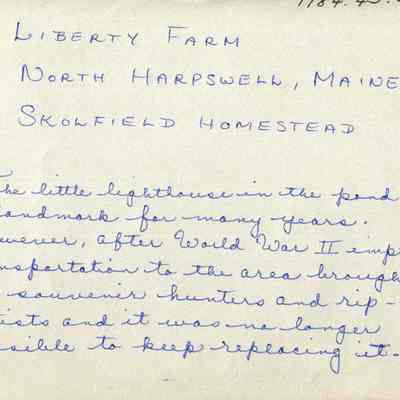 LIBERTY FARM
NORTH HARPSWELL, MAINE
SKOLFIELD HOMESTEAD
he little lighthouse in the pond
landmark for many years.
wever, after World War II imp
nsportation to the area brough
souvenir hunters and rip-
ists and it was no longer
sible to keep replacing it.